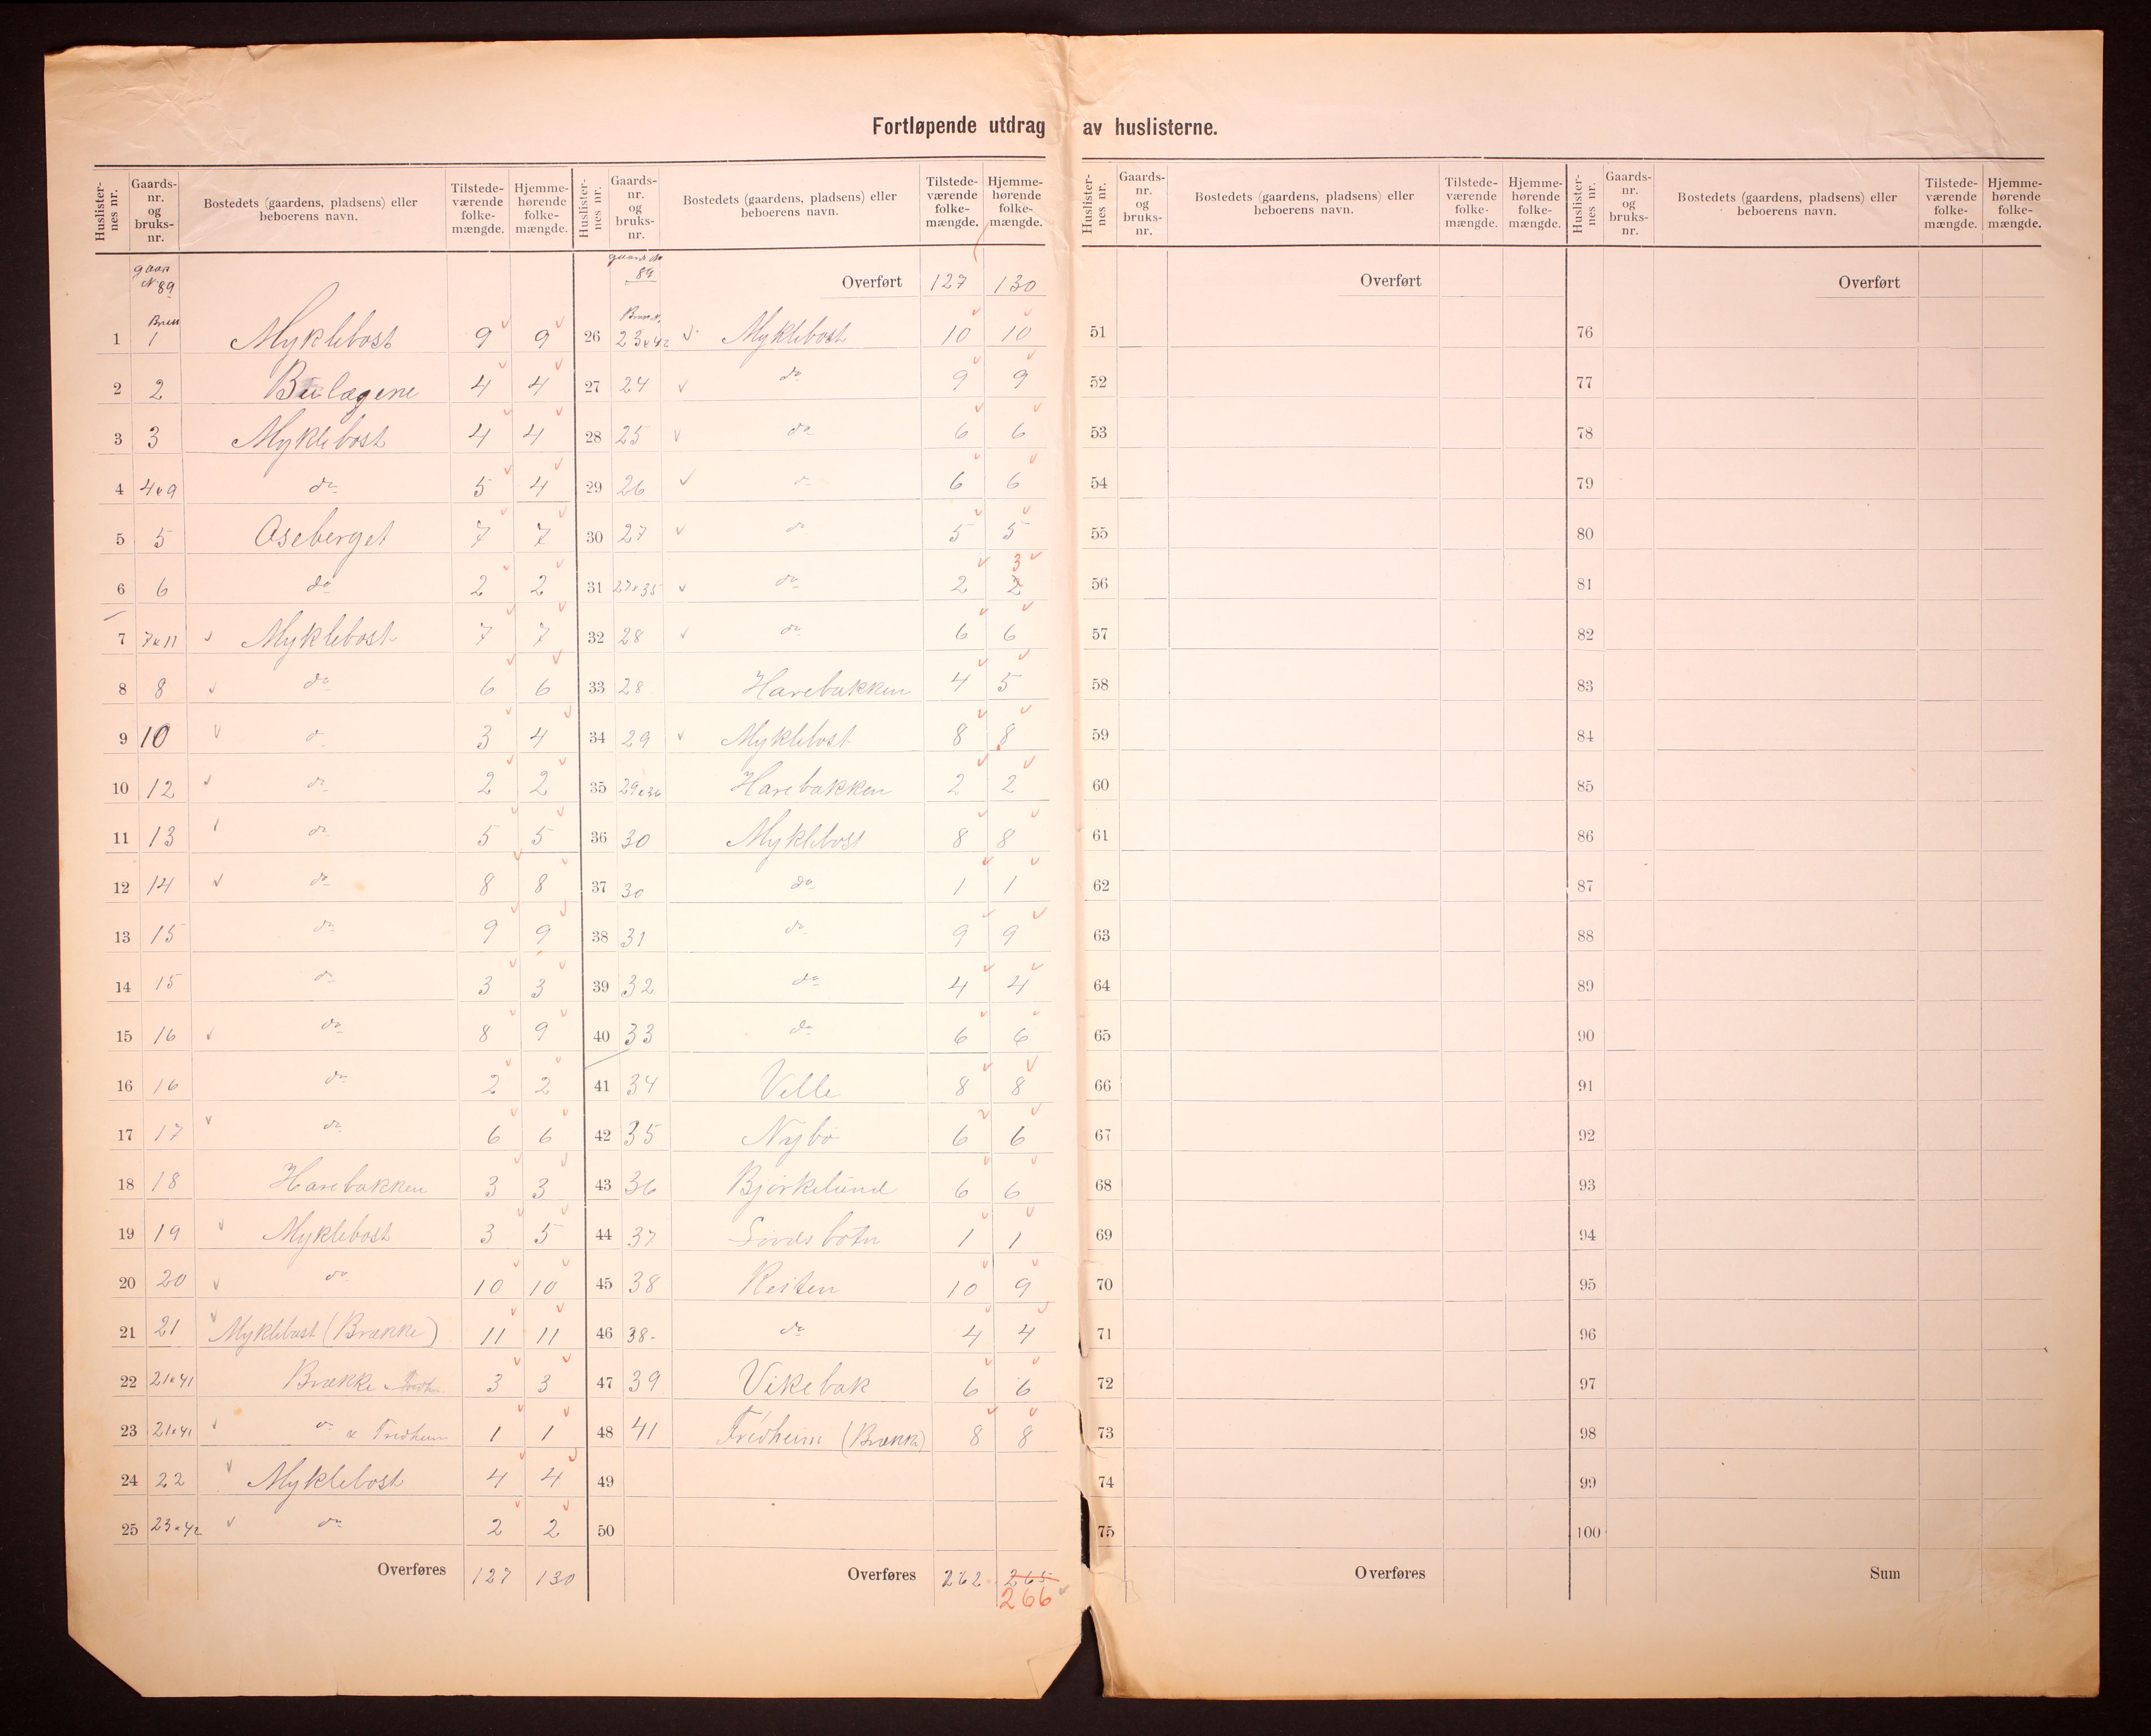 Fortløpende utdrag av huslisterne.
Huslisternes nr. Gaards-nr. og bruks-nr. Bostedets (gaardens, pladsens) eller beboerens navn. Tilstedeværende folkemængde. Hjemmehørende folkemængde.
Huslisternes nr. Gaards-nr. og bruks-nr. Bostedets (gaardens, pladsens) eller beboerens navn. Tilstedeværende folkemængde. Hjemmehørende folkemængde.
Huslisternes nr. Gaards-nr. og bruks-nr. Bostedets (gaardens, pladsens) eller beboerens navn. Tilstedeværende folkemængde. Hjemmehørende folkemængde.
Huslisternes nr. Gaards-nr. og bruks-nr. Bostedets (gaardens, pladsens) eller beboerens navn. Tilstedeværende folkemængde. Hjemmehørende folkemængde.
N 89
1 1 Myklebost 9 9
2 2 4 4
3 3 Myklebost 4 4
4 4 & 9 do 5 4
5 5 Aseberget 7 7
6 6 do 2 2
7 7 & 11 Myklebost 7 7
8 8 do 6 6
9 10 do 3 4
10 12 do 2 2
11 13 do 5 5
12 14 do 8 8
13 15 do 9 9
14 15 do 3 3
15 16 do 8 9
16 16 do 2 2
17 17 do 6 6
18 18 Harebakken 3 3
19 19 Myklebost 3 5
20 20 do 10 10
21 21 Myklebost (Brække) 11 11
22 21 & 41 Brække 3 3
23 21 & 41 do & Fridheim 1 1
24 22 Myklebost 4 4
25 23 & 42 do 2 2
Overføres 127 130
89
Overført 127 130
26 23 & 42 Myklebost 10 10
27 24 do 9 9
28 25 do 6 6
29 26 do 6 6
30 27 do 5 5
31 27 & 35 do 2 2 3
32 28 do 6 6
33 28 Harebakken 4 5
34 29 Myklebost 8 8
35 29 & 36 Harebakken 2 2
36 30 Myklebost 8 8
37 30 do 1 1
38 31 do 9 9
39 32 do 4 4
40 33 do 6 6
41 34 Velle 8 8
42 35 Nybø 6 6
43 36 Bjørkelund 6 6
44 37 1 1
45 38 Reiten 10 9
46 38 do 4 4
47 39 Vikebak 6 6
48 41 Fridheim (Brække) 8 8
49
50
Overføres 262 265
266
Overført
51
52
53
54
55
56
57
58
59
60
61
62
63
64
65
66
67
68
69
70
71
72
73
74
75
Overføres
Overført
76
77
78
79
80
81
82
83
84
85
86
87
88
89
90
91
92
93
94
95
96
97
98
99
100
Sum